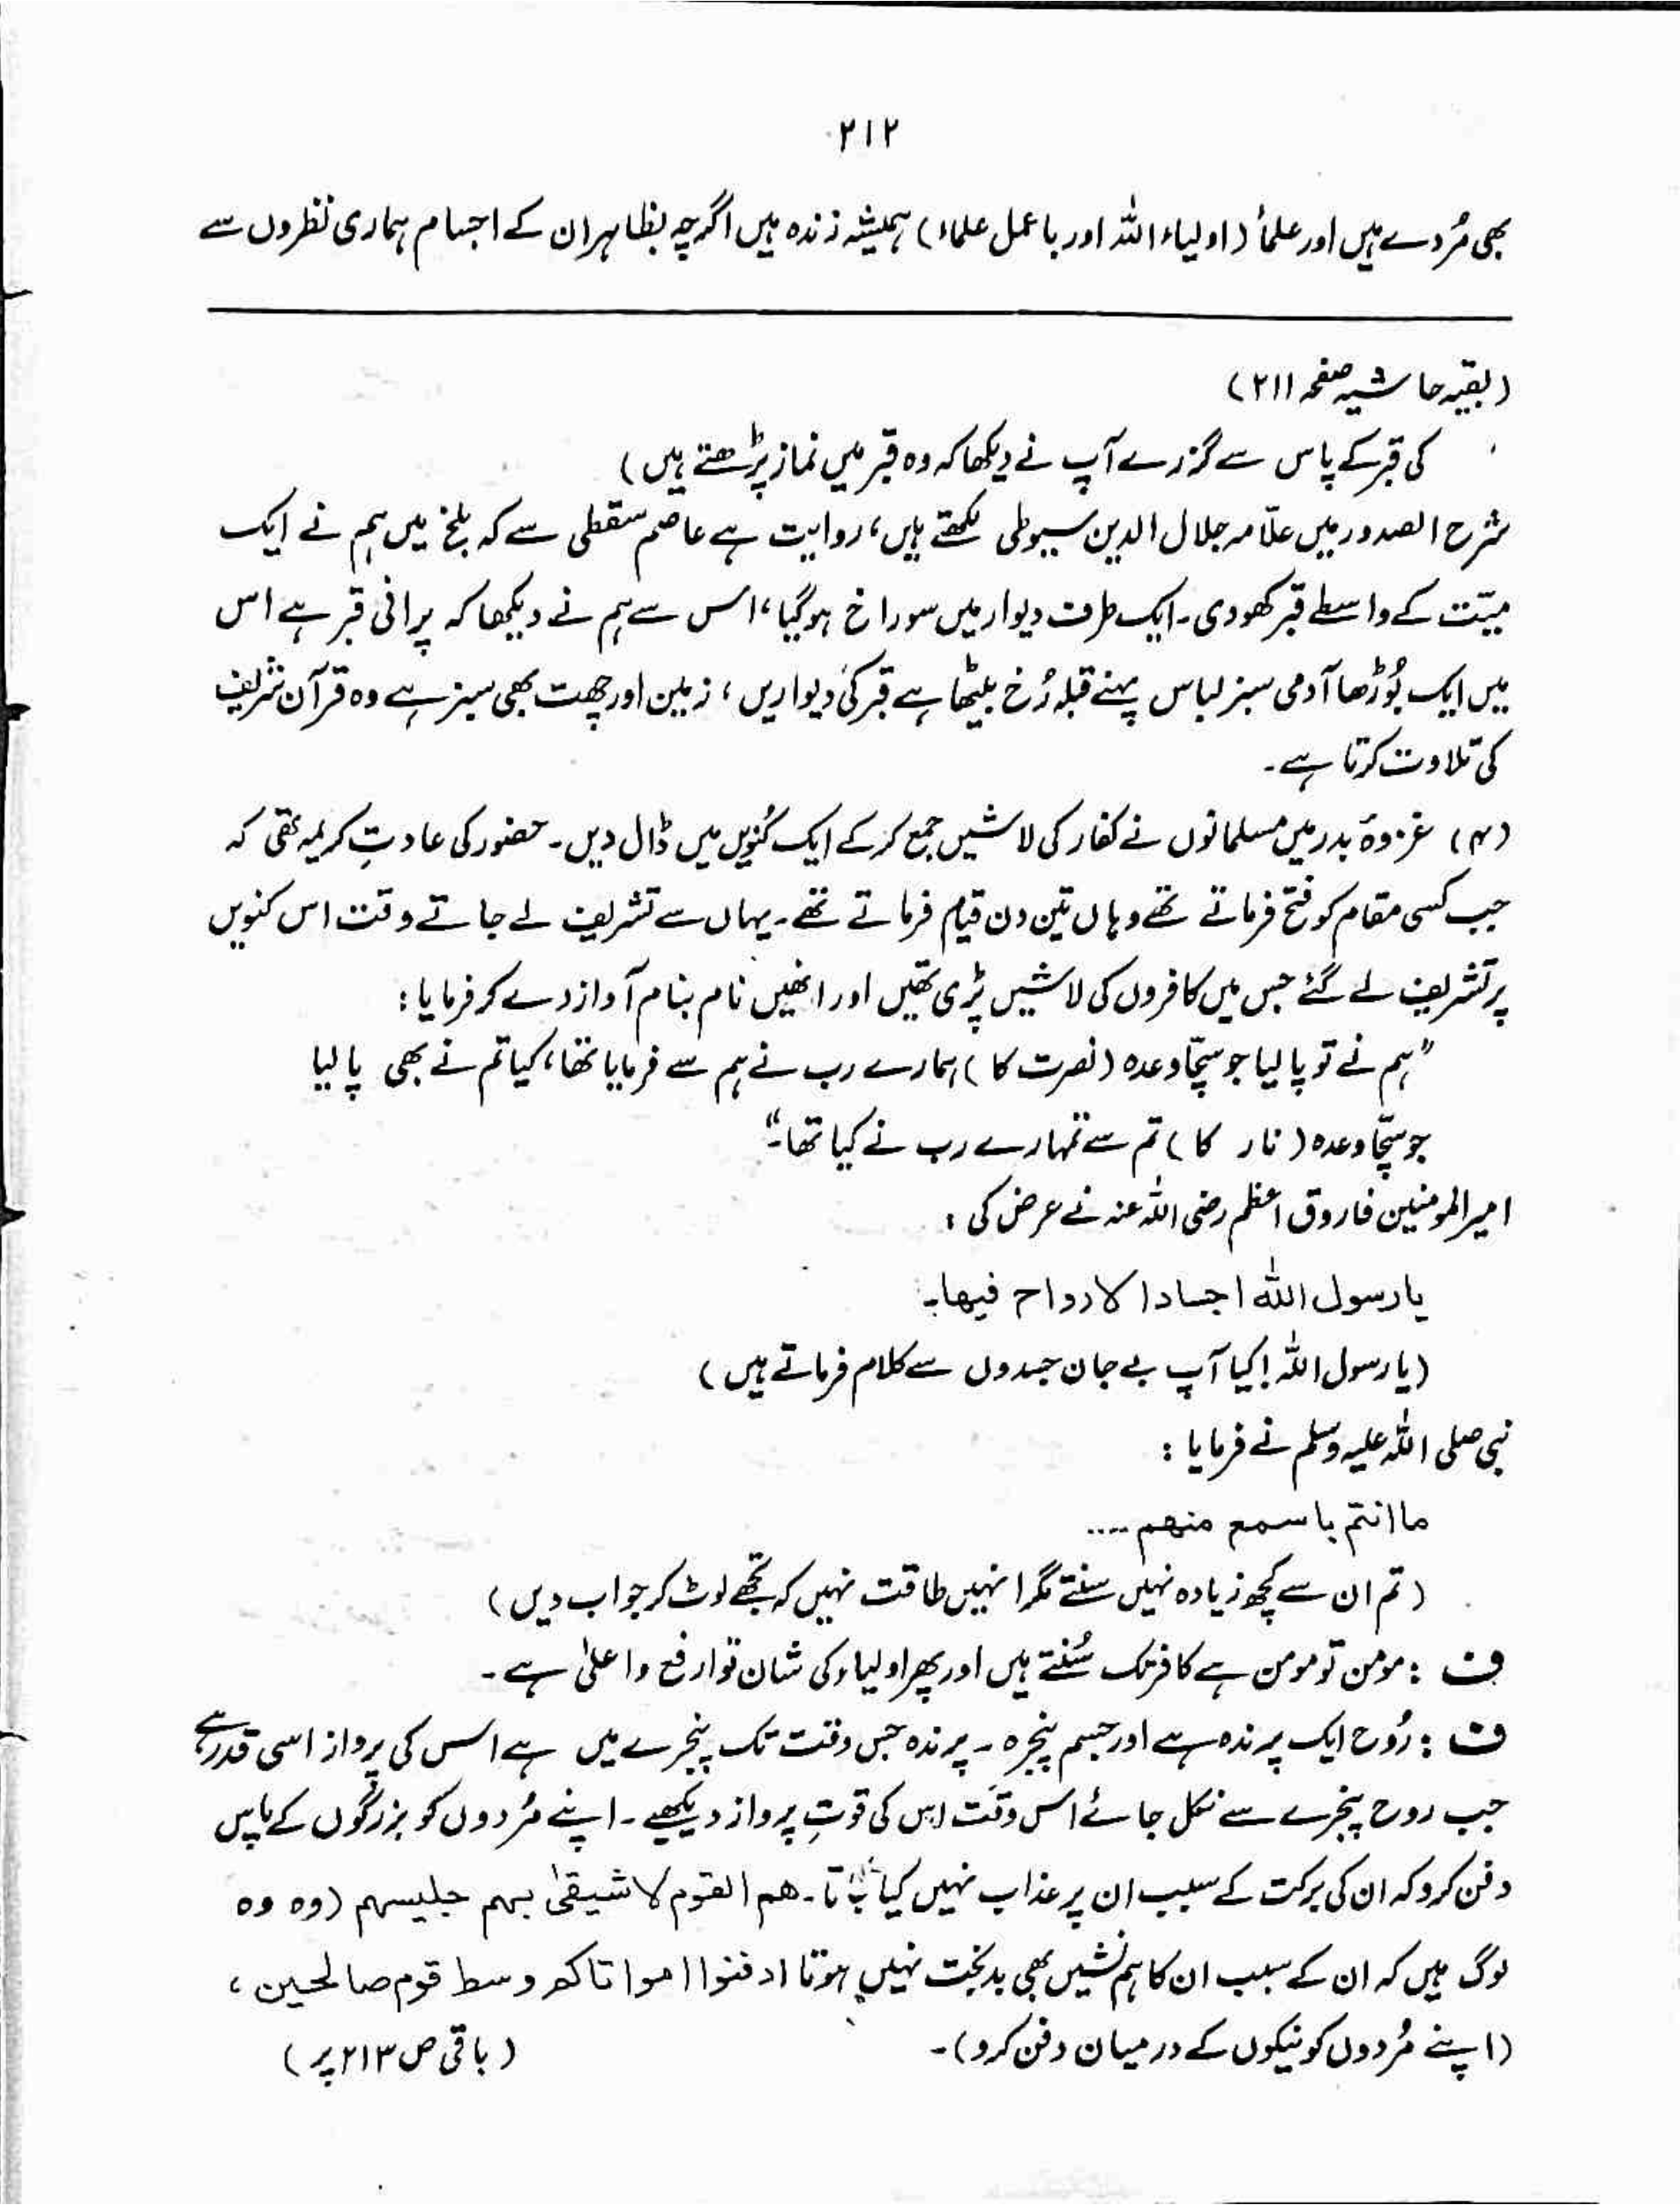 ۲۱۲
بھی مُردے ہیں اور علمأ (اولیاء اللہ اور باعمل علماء) ہمیشہ زندہ ہیں اگرچہ بظاہر ان کے اجسام ہماری نظروں سے
(بقیہ حاشیہ صفحہ ۲۱۱)
کی قبر کے پاس سے گزرے آپ نے دیکھا کہ وہ قبر میں نماز پڑھتے ہیں)
شرح الصدور میں علّامہ جلال الدین سیوطی لکھتے ہیں، روایت ہے عاصم سقطی سے کہ بلخ میں ہم نے ایک
میّت کے واسطے قبر کھودی۔ ایک طرف دیوار میں سوراخ ہوگیا، اس سے ہم نے دیکھا کہ پرانی قبر ہے اس
میں ایک بُوڑھا آدمی سبز لباس پہنے قبلہ رُخ بیٹھا ہے قبر کی دیواریں، زمین اور چھت بھی سبز ہے وہ قرآن شریف
کی تلاوت کرتا ہے۔
(۴) غزوۂ بدر میں مسلمانوں نے کفار کی لاشیں جمع کر کے ایک کُنویں میں ڈال دیں۔ حضور کی عادتِ کریمہ تھی کہ
جب کسی مقام کو فتح فرماتے تھے وہاں تین دن قیام فرماتے تھے۔ یہاں سے تشریف لے جاتے وقت اس کنویں
پر تشریف لے گئے جس میں کافروں کی لاشیں پڑی تھیں اور انھیں نام بنام آواز دے کر فرمایا:
"ہم نے تو پا لیا جو سچّا وعدہ (نصرت کا) ہمارے رب نے ہم سے فرمایا تھا، کیا تم نے بھی پا لیا
جو سچّا وعدہ (نار کا) تم سے تمہارے رب نے کیا تھا۔"
امیر المومنین فاروق اعظم رضی اللہ عنہ نے عرض کی:
یا رسول اللہ اجسادا لا ارواح فیھا۔
(یا رسول اللہ! کیا آپ بے جان جسدوں سے کلام فرماتے ہیں)
نبی صلی اللہ علیہ وسلم نے فرمایا:
ما انتم باسمع منھم ....
(تم ان سے کچھ زیادہ نہیں سنتے مگر انہیں طاقت نہیں کہ تجھے لوٹ کر جواب دیں)
ف: مومن تو مومن ہے کافر تک سُنتے ہیں اور پھر اولیاء کی شان تو ارفع و اعلیٰ ہے۔
ف: رُوح ایک پرندہ ہے اور جسم پنجرہ۔ پرندہ جس وقت تک پنجرے میں ہے اس کی پرواز اسی قدر ہے
جب روح پنجرے سے نکل جائے اس وقت اس کی قوتِ پرواز دیکھیے۔ اپنے مُردوں کو بزرگوں کے پاس
دفن کرو کہ ان کی برکت کے سبب ان پر عذاب نہیں کیا جاتا۔ ھم القوم لا شیقیٰ بہم جلیسہم (وہ وہ
لوگ ہیں کہ ان کے سبب ان کا ہم نشیں بھی بدبخت نہیں ہوتا ادفنوا امواتاکم وسط قوم صالحین،
(اپنے مُردوں کو نیکوں کے درمیان دفن کرو)۔ (باقی ص ۲۱۳ پر)